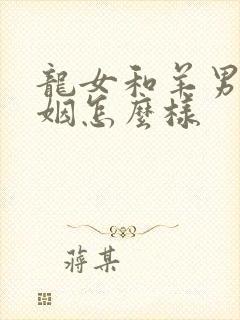 龍女和羊男
姻怎麼樣
蔣某